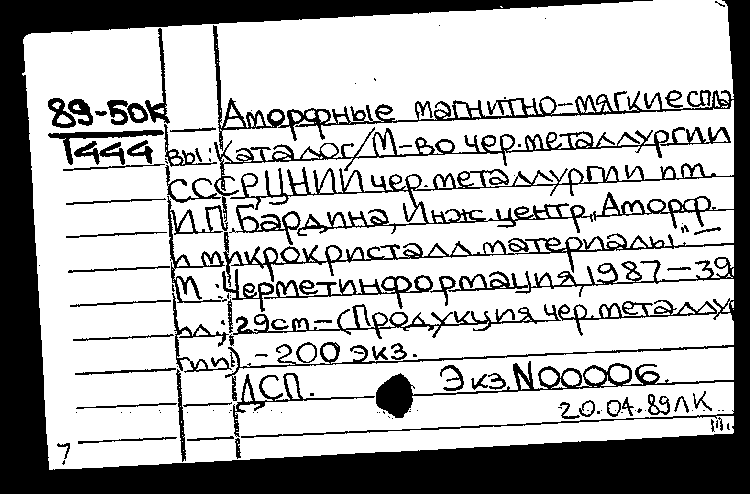 89-50К Аморфные магнитно-мягкие спла
1444 вы: Каталог/М-во чер.металлургии
СССР,ЦНИИ чер.металлургии им.
И.П.Бардина, Инж.центр „Аморф.
и микрокристалл.материалы".—
М.:Черметинформация,1987—39
ил.; 29см.—(Продукция чер.металлу
гии).-200 экз.
ДСП. Экз.N00006.
20.04.89ЛК
7